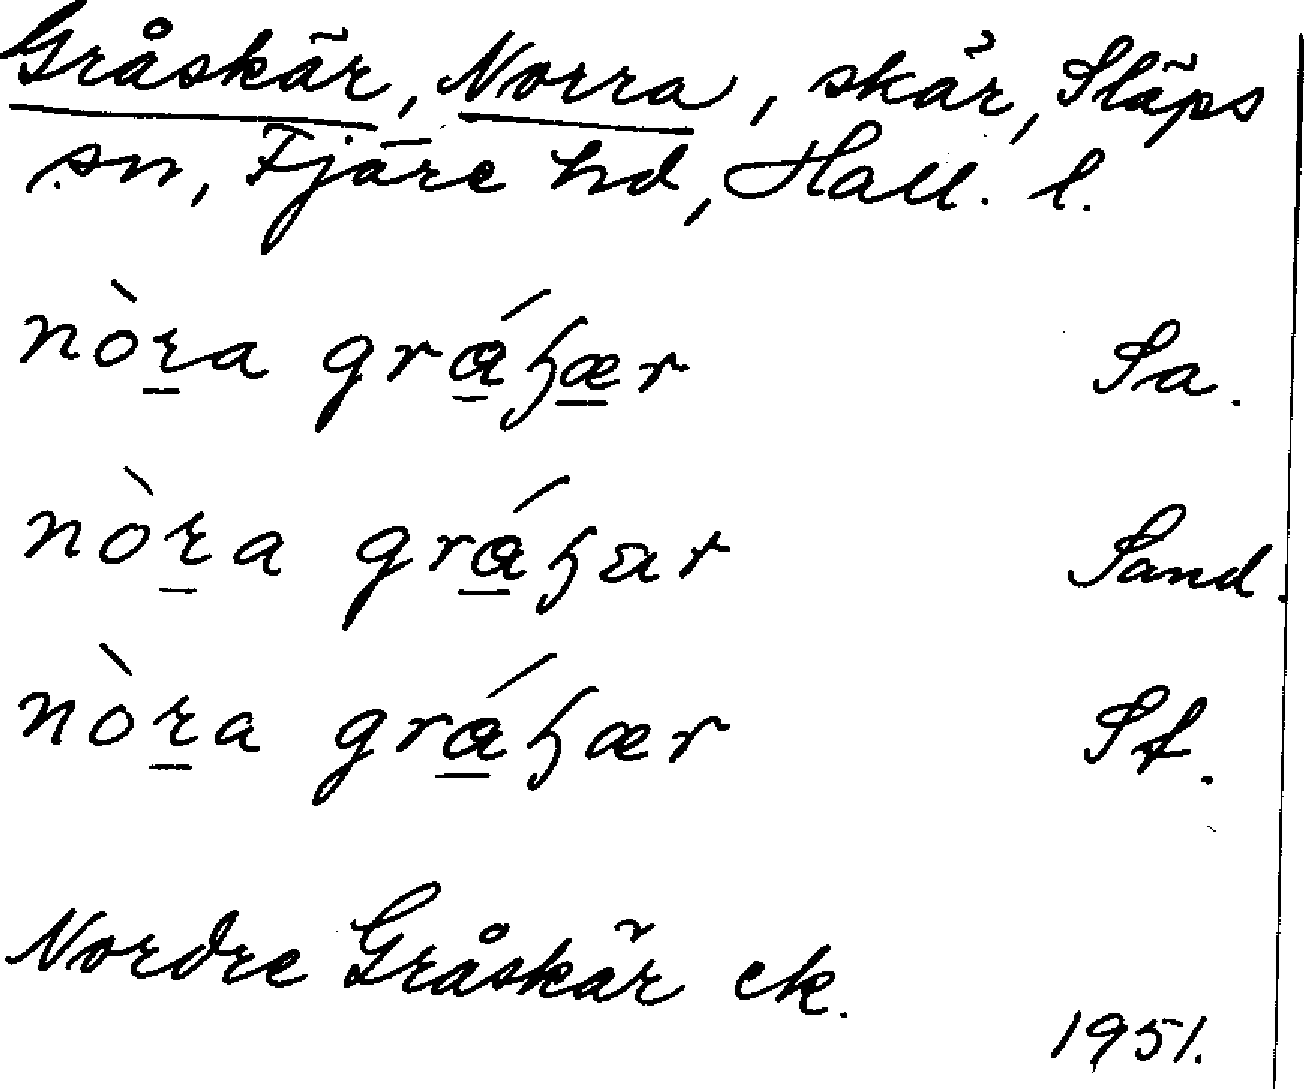 Gråskär, Norra, skär, Släps
sn, Fjäre hd, Hall. l.
nòra
Sa.
nòra
Sand.
nòra
Sf.
Nordre Gråskär ek.
1951.